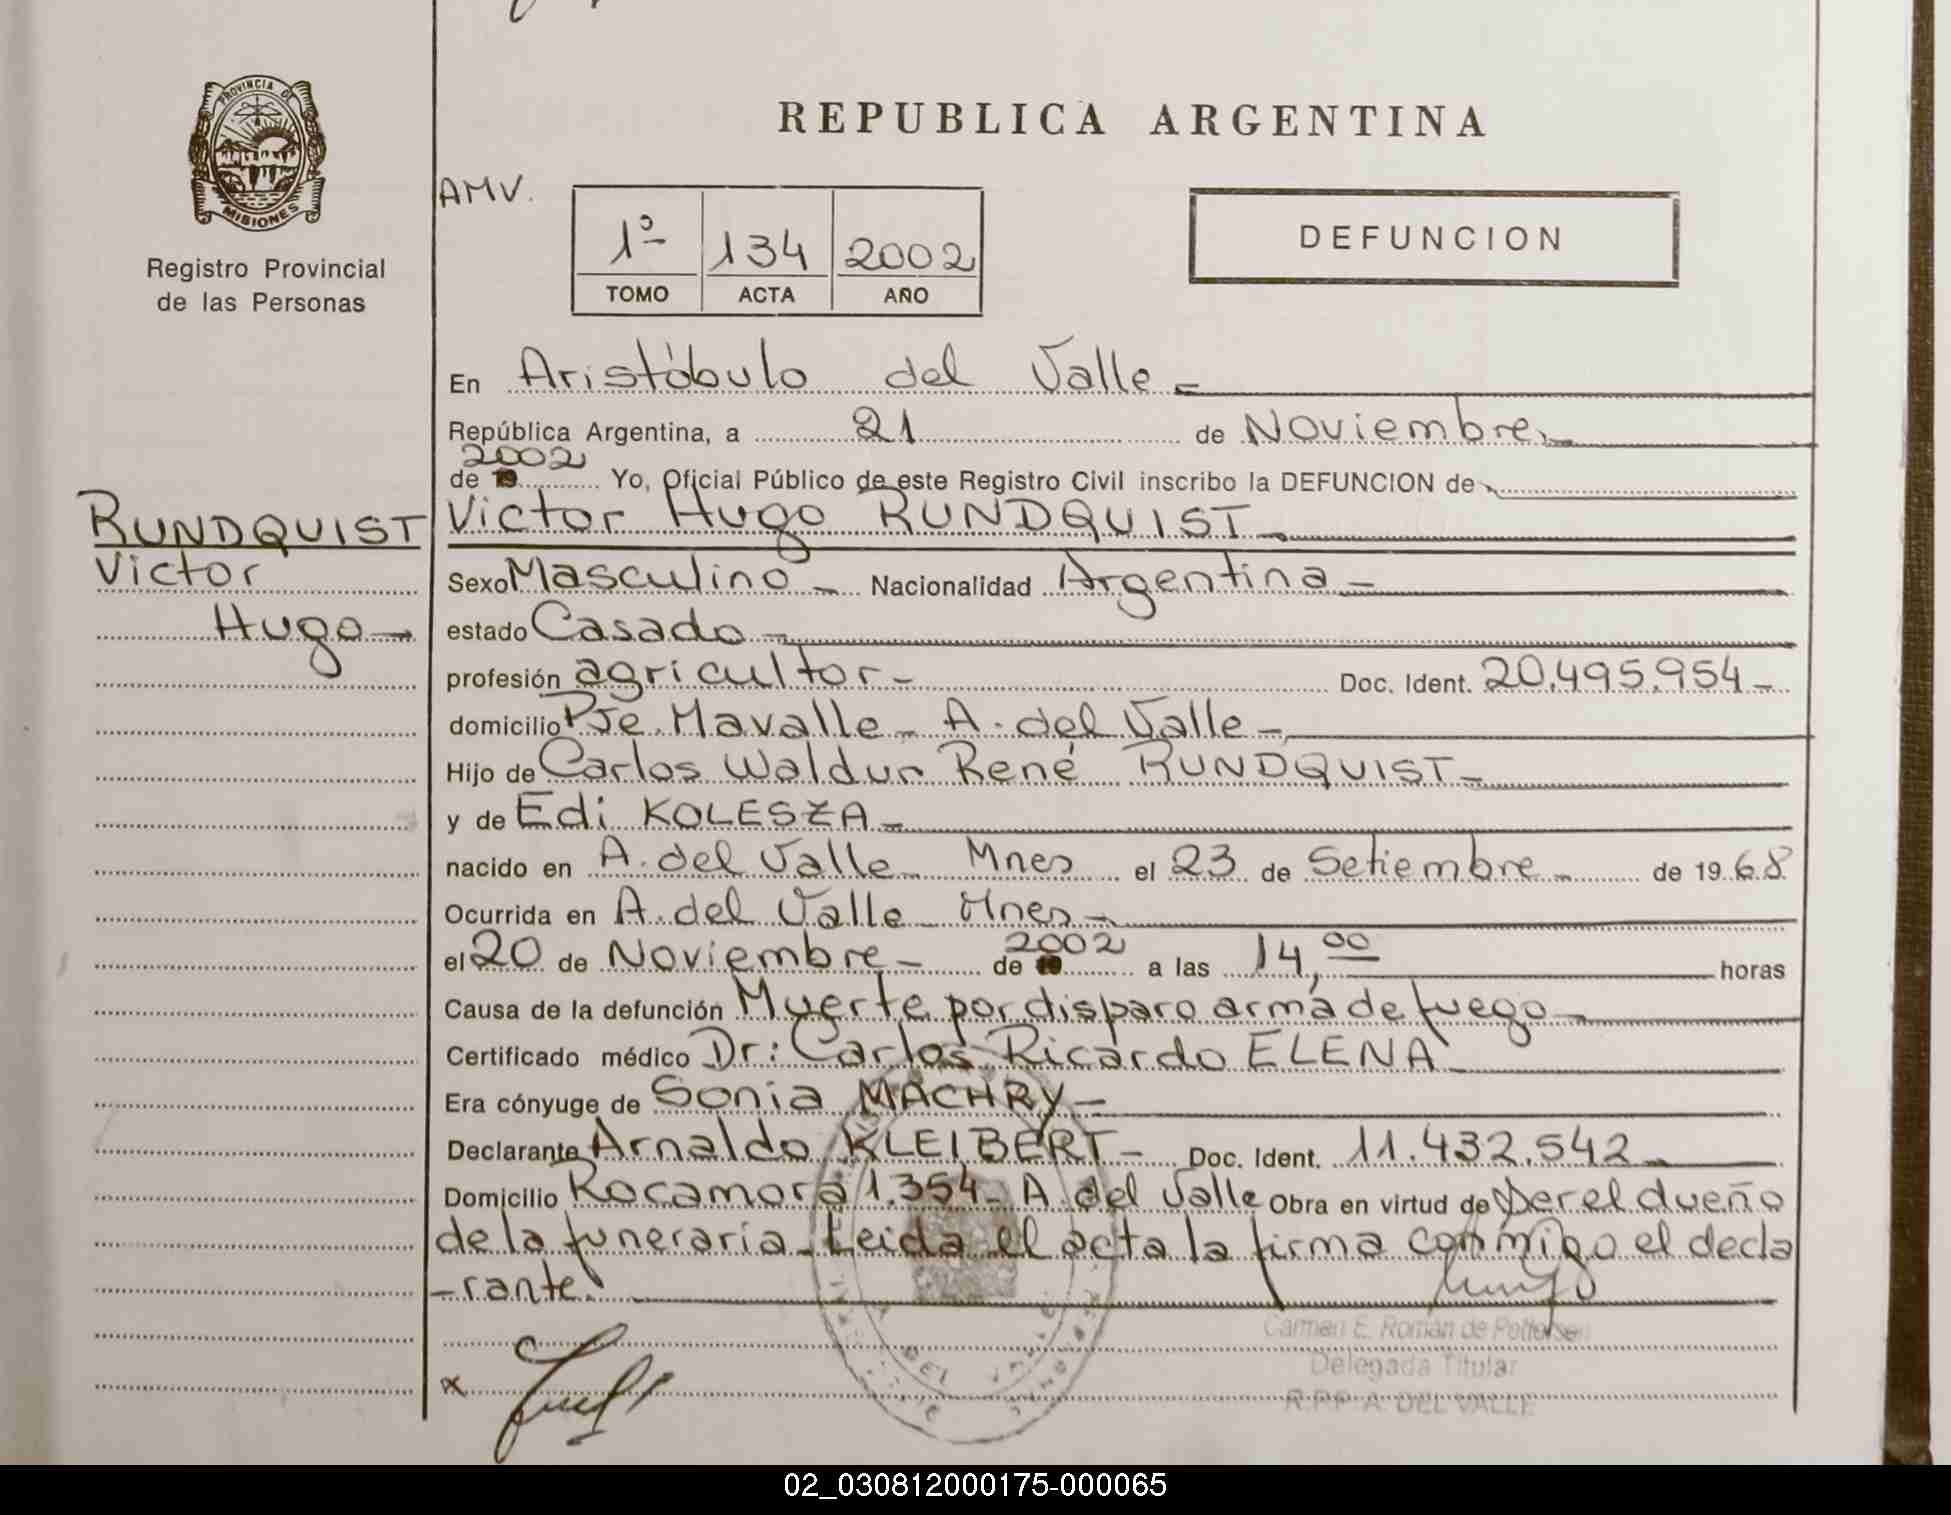 PROVINCIA DE
MISIONES
Registro Provincial
de las Personas
REPUBLICA ARGENTINA
AMV.
1º 134 2002
TOMO ACTA AÑO
DEFUNCION
En Aristóbulo del Valle
República Argentina, a 21 de Noviembre
2002
de 19 Yo, Oficial Público de este Registro Civil inscribo la DEFUNCION de
RUNDQUIST Victor Hugo RUNDQUIST
Victor Sexo Masculino Nacionalidad Argentina
Hugo estado Casado
profesión agricultor Doc. Ident. 20.495.954
domicilio Pje. Mavalle A. del Valle
Hijo de Carlos Waldur René RUNDQUIST
y de Edi KOLESZA
nacido en A. del Valle Mnes el 23 de Setiembre de 1968
Ocurrida en A. del Valle Mnes
el 20 de Noviembre de 2002 a las 14,00 horas
Causa de la defunción Muerte por disparo arma de fuego
Certificado médico Dr: Carlos Ricardo ELENA
Era cónyuge de Sonia MACHRY
Declarante Arnaldo KLEIBERT Doc. Ident. 11.432.542
Domicilio Rocamora 1.354 A. del Valle Obra en virtud de ser el dueño
de la funeraria. Leida el acta la firma conmigo el decla
-rante.
Carmen E. Román de Pettersen
Delegada Titular
x
R.P.P. A. DEL VALLE
02_030812000175-000065